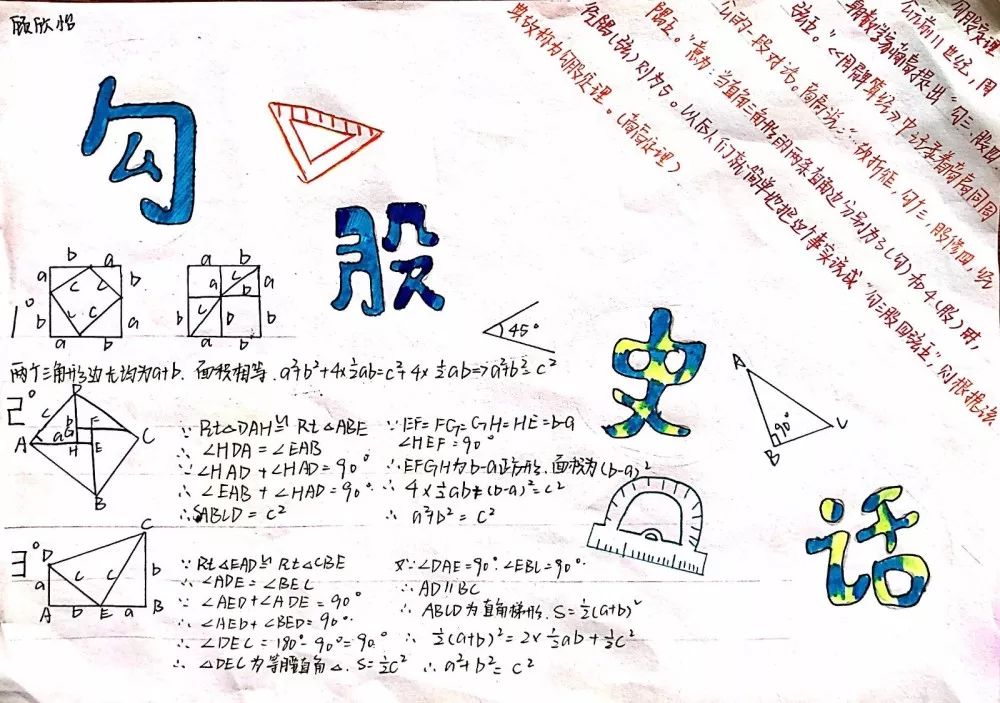 顾欣怡
勾
股
史
话
勾股定理
公元前11世纪，周
朝数学家商高提出“勾三、股四、
弦五。”《周髀算经》中记录着商高同周
公的一段对话。商高说：“…故折矩，勾广三，股修四，经
隅五。”意为：当直角三角形的两条直角边分别为3（勾）和4（股）时，
径隅（弦）则为5。以后人们就简单地把这个事实说成“勾三股四弦五”，则根据该
典故称为勾股定理。（商高定理）
a b a b
b c c a b
a c c b a a
b a b b
a b a b
1°
两个三角形边长均为a+b. 面积相等. a²+b²+4×½ab=c²+4×½ab=>a²+b²=c²
2°
D
c F
A a G E C
H
B
∵ Rt△DAH≌Rt△ABE
∴ ∠HDA=∠EAB
∵∠HAD+∠HAD=90°
∴ ∠EAB+∠HAD=90°
∴SABCD=c²
∵EF=FG=GH=HE=b-a
∠HEF=90°
∴EFGH为b-a正方形. 面积为(b-a)²
∴ 4×½ab+(b-a)²=c²
∴ a²+b²=c²
3°
C
D
a c c b
A b E a B
∵ Rt△EAD≌Rt△CBE
∴ ∠ADE=∠BEC
∵ ∠AED+∠ADE=90°
∴ ∠AED+∠BED=90°
∴ ∠DEC=180°-90°=90°
∴ △DEC为等腰直角△. S=½c²
又∵∠DAE=90°. ∠EBC=90°
∴ AD∥BC
∴ ABCD为直角梯形. S=½(a+b)²
∴ ½(a+b)²=2×½ab+½c²
∴a²+b²=c²
45°
A
90°
B
C